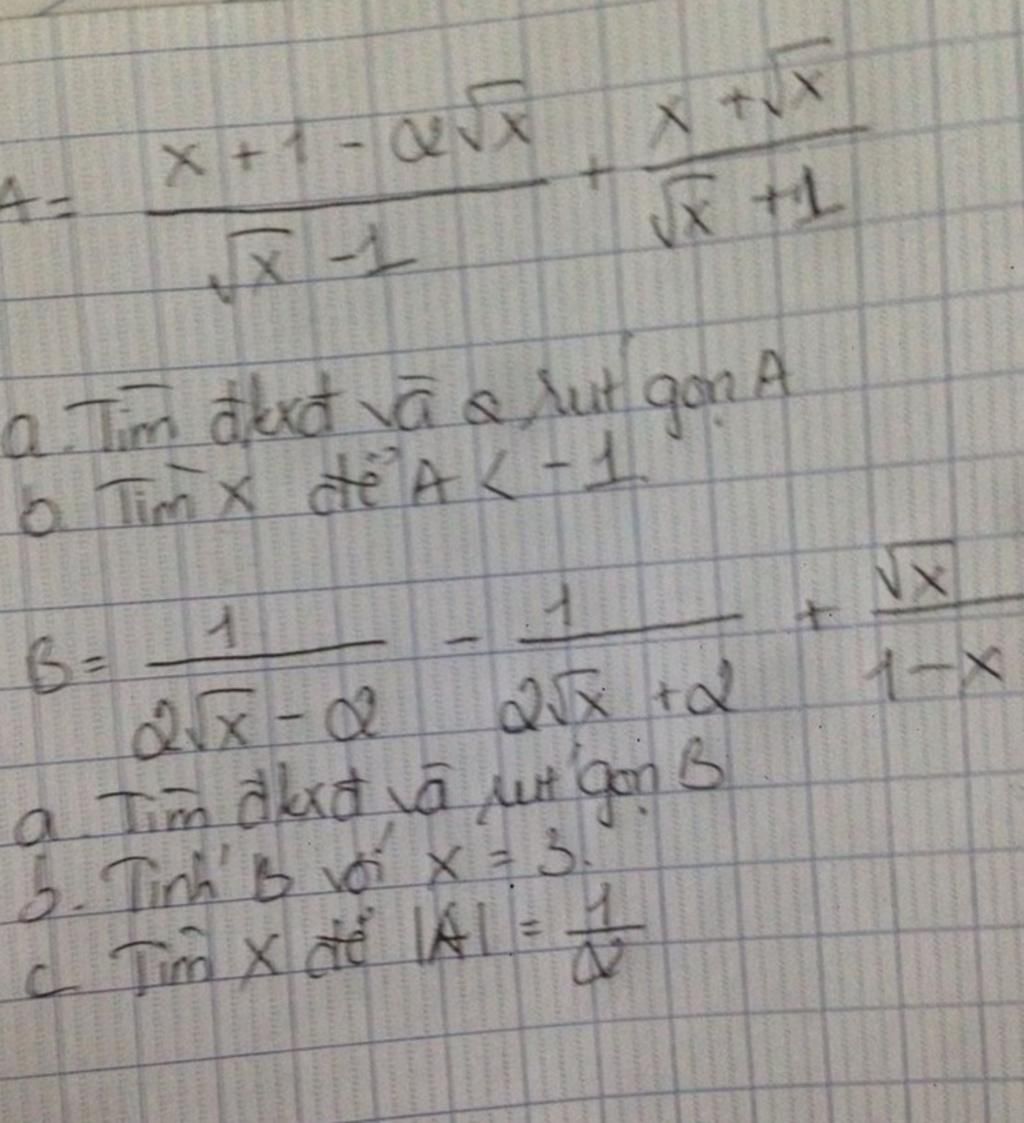 A = \frac{x + 1 - 2\sqrt{x}}{\sqrt{x} - 1} + \frac{x + \sqrt{x}}{\sqrt{x} + 1}
a. Tìm đkxđ và rút gọn A
b. Tìm x để A < -1
B = \frac{1}{2\sqrt{x} - 2} - \frac{1}{2\sqrt{x} + 2} + \frac{\sqrt{x}}{1 - x}
a. Tìm đkxđ và rút gọn B
b. Tính B với x = 3.
c. Tìm x để |A| = \frac{1}{2}